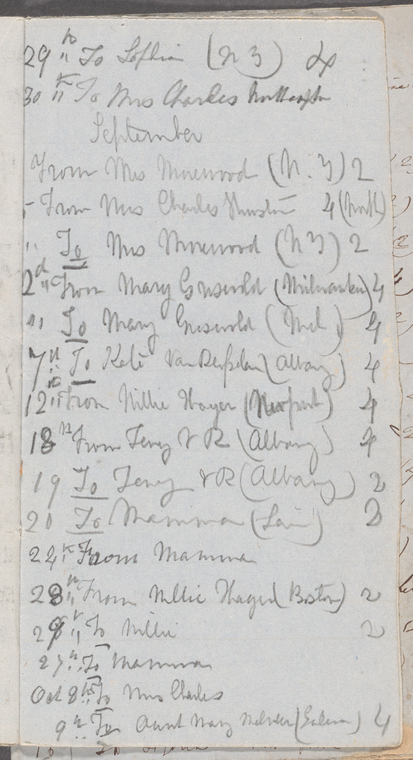 29th To Sophia (N Y) 4
30th " To Mrs Charles
September
From Mrs Morewood (N. Y) 2
From Mrs Charles 4 (North)
" To Mrs Morewood (N Y) 2
2d " From Mary Griswold (Milwaukee) 4
" To Mary Griswold (Mil) 4
7th To Kate Van Rensselaer (Albany) 4
12th From Millie Thayer (Newport) 4
18th From Jenny V R (Albany) 4
19 To Jenny V R (Albany) 2
20 To Mamma 3
22th From Mamma
28th " From Millie Thayer (Boston) 2
29th " To Millie 2
27th " To Mamma
Oct 8th To Mrs Charles
9th " To Aunt Mary 4